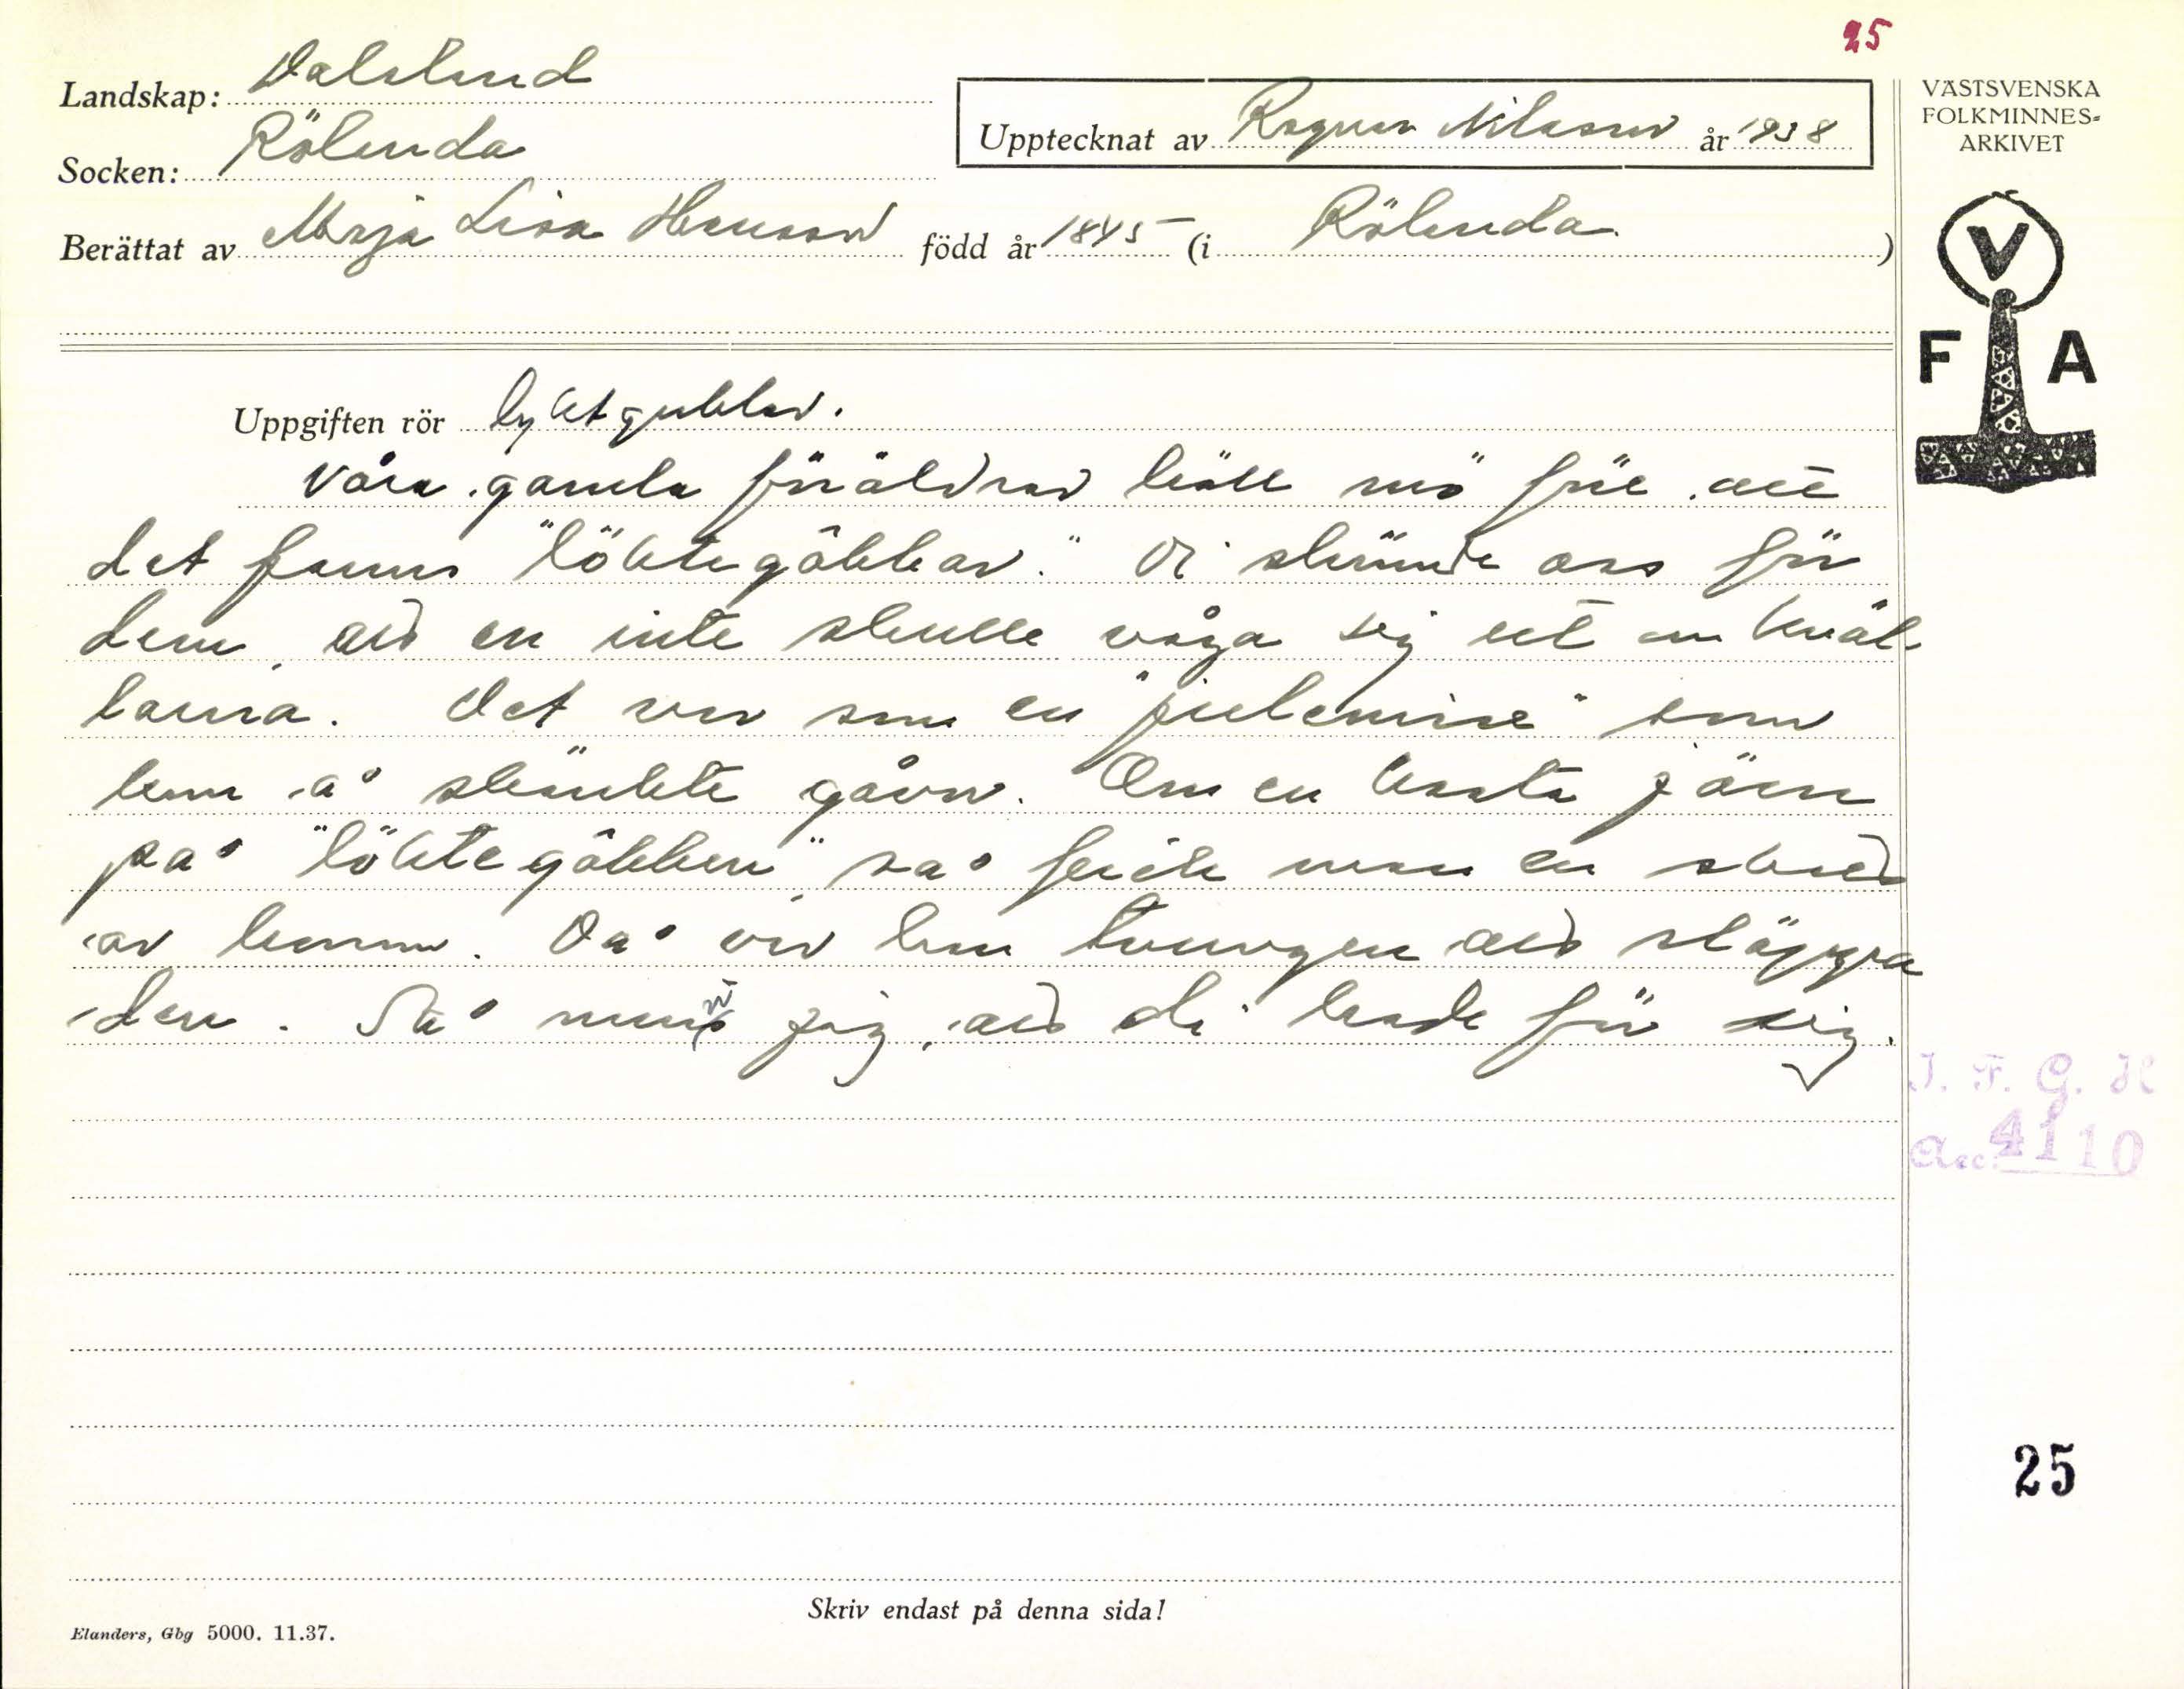 25
Landskap: Dalsland
Socken: Rölanda
Upptecknat av Ragnar Nilsson år 1938
Berättat av Maja Lisa Hansson född år 1845 (i Rölanda.)
VÄSTSVENSKA
FOLKMINNES=
ARKIVET
V
F A
Uppgiften rör lyktgubbar.
Våra gamla föräldrar höll mö för att
det fanns "löktegôbbar." Di skrämde oss för
dem, att en inte skulle våga sig ut om kväl-
larna. Det var som en som
kom å skänkte gåvor. Om en kasta järn
på "löktegôbben" så fick man en sked
av honom. Då var han tvungen att släppa
den. Så minns jag, att di hade för sig.
J. F. G. H
Acc. 4110
25
Skriv endast på denna sida!
Elanders, Gbg 5000. 11.37.